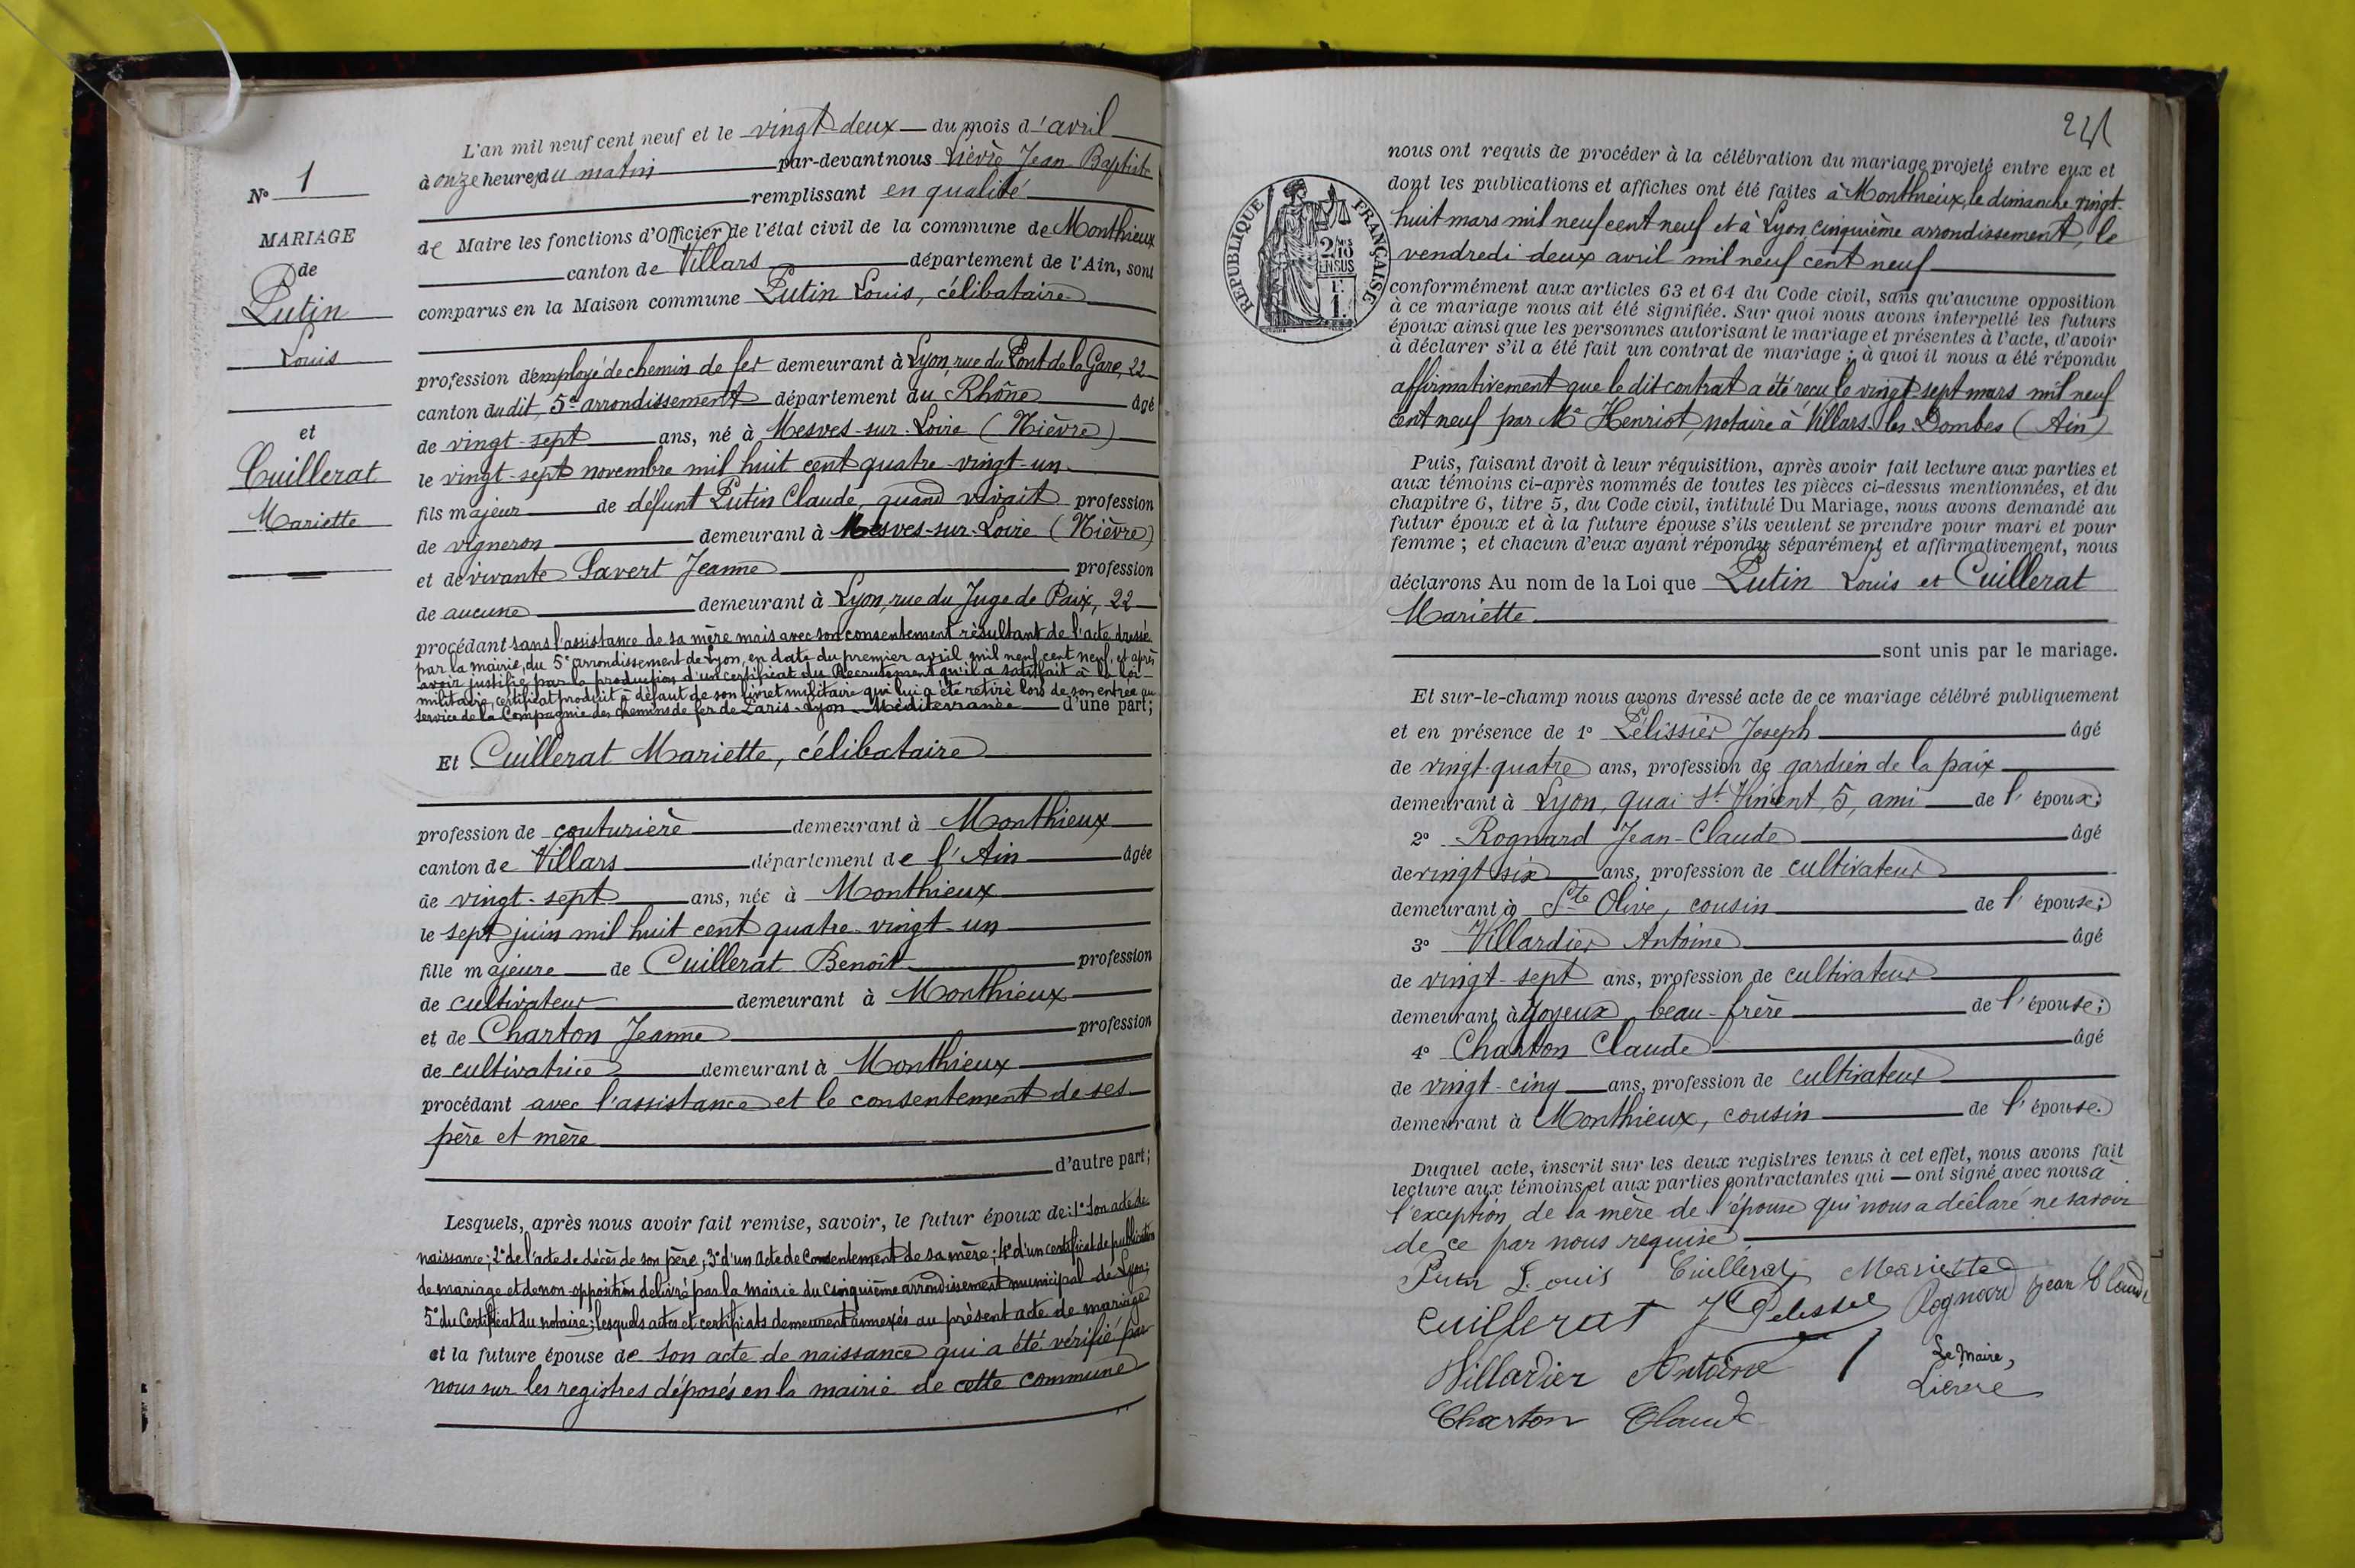 N° 1
MARIAGE
de
Putin
Louis
et
Cuillerat
Mariette
L'an mil neuf cent neuf et le vingt-deux du mois d'avril
à onze heures du matin par-devant nous Lièvre Jean-Baptiste
remplissant en qualité
de Maire les fonctions d'Officier de l'état civil de la commune de Monthieux
canton de Villars département de l'Ain, sont
comparus en la Maison commune Putin Louis, célibataire
profession d'employé de chemin de fer demeurant à Lyon, rue du Pont de la Gare, 22
canton du dit, 5e arrondissement département du Rhône âgé
de vingt-sept ans, né à Mesves-sur-Loire (Nièvre)
le vingt-sept novembre mil huit cent quatre-vingt-un
fils majeur de défunt Putin Claude, quand vivait profession
de vigneron demeurant à Mesves-sur-Loire (Nièvre)
et de vivante Savert Jeanne profession
de aucune demeurant à Lyon, rue du Juge de Paix, 22
procédant sans l'assistance de sa mère mais avec son consentement résultant de l'acte dressé
par la mairie du 5e arrondissement de Lyon, en date du premier avril mil neuf cent neuf, et après
avoir justifié par la production d'un certificat du Recrutement qu'il a satisfait à la loi
militaire, certificat produit à défaut de son livret militaire qui lui a été retiré lors de son entrée au
service de la Compagnie des chemins de fer de Paris-Lyon-Méditerranée d'une part;
Et Cuillerat Mariette, célibataire
profession de couturière demeurant à Monthieux
canton de Villars département de l'Ain âgée
de vingt-sept ans, née à Monthieux
le sept juin mil huit cent quatre-vingt-un
fille majeure de Cuillerat Benoît profession
de cultivateur demeurant à Monthieux
et de Charton Jeanne profession
de cultivatrice demeurant à Monthieux
procédant avec l'assistance et le consentement de ses
père et mère
d'autre part;
Lesquels, après nous avoir fait remise, savoir, le futur époux de: 1° son acte de
naissance; 2° de l'acte de décès de son père; 3° d'un acte de consentement de sa mère; 4° d'un certificat de publication
de mariage et de non opposition délivré par la mairie du cinquième arrondissement municipal de Lyon;
5° du Certificat du notaire; lesquels actes et certificats demeurent annexés au présent acte de mariage
et la future épouse de son acte de naissance qui a été vérifié par
nous sur les registres déposés en la mairie de cette commune
RÉPUBLIQUE FRANÇAISE
2/10
EN SUS
1.
nous ont requis de procéder à la célébration du mariage projeté entre eux et
dont les publications et affiches ont été faites à Monthieux, le dimanche vingt-
huit mars mil neuf cent neuf et à Lyon cinquième arrondissement, le
vendredi deux avril mil neuf cent neuf
conformément aux articles 63 et 64 du Code civil, sans qu'aucune opposition
à ce mariage nous ait été signifiée. Sur quoi nous avons interpellé les futurs
époux ainsi que les personnes autorisant le mariage et présentes à l'acte, d'avoir
à déclarer s'il a été fait un contrat de mariage; à quoi il nous a été répondu
affirmativement que le dit contrat a été reçu le vingt-sept mars mil neuf
cent neuf par Me Henriot, notaire à Villars-les-Dombes (Ain)
Puis, faisant droit à leur réquisition, après avoir fait lecture aux parties et
aux témoins ci-après nommés de toutes les pièces ci-dessus mentionnées, et du
chapitre 6, titre 5, du Code civil, intitulé Du Mariage, nous avons demandé au
futur époux et à la future épouse s'ils veulent se prendre pour mari et pour
femme; et chacun d'eux ayant répondu séparément et affirmativement, nous
déclarons Au nom de la Loi que Putin Louis et Cuillerat
Mariette
sont unis par le mariage.
Et sur-le-champ nous avons dressé acte de ce mariage célébré publiquement
et en présence de 1° Pélissier Joseph âgé
de vingt-quatre ans, profession de gardien de la paix
demeurant à Lyon, quai St Vincent, 5, ami de l'époux;
2° Rognard Jean-Claude âgé
de vingt six ans, profession de cultivateur
demeurant à Ste Olive, cousin de l'épouse;
3° Villardier Antoine âgé
de vingt-sept ans, profession de cultivateur
demeurant à Joyeux, beau-frère de l'épouse;
4° Charton Claude âgé
de vingt-cinq ans, profession de cultivateur
demeurant à Monthieux, cousin de l'épouse.
Duquel acte, inscrit sur les deux registres tenus à cet effet, nous avons fait
lecture aux témoins et aux parties contractantes qui ont signé avec nous à
l'exception de la mère de l'épouse qui nous a déclaré ne savoir
de ce par nous requise
Putin Louis Cuillerat Mariette
Cuillerat J Pelissier Rognard Jean Claude
Villardier Antoine
Le Maire,
Lièvre
Charton Claude